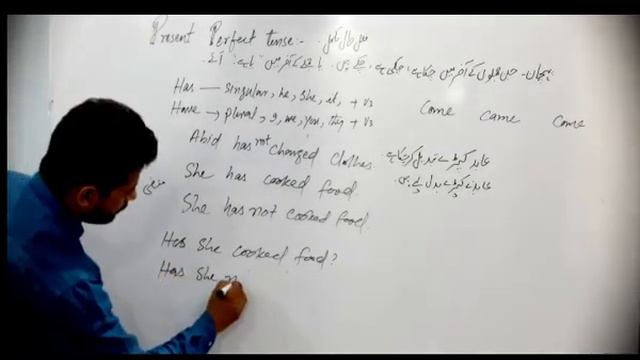 Present Perfect tense:- فعل حال مکمل
پہچان۔ جن جملوں کے آخر میں چکا ہے، چکی ہے، چکے ہیں، یا جملے کے آخر میں "یا ہے" آئے
Has — singular, he, she, it, + V3
Have → plural, I, we, you, they + V3
Come came Come
Abid has not changed clothes. عابد کپڑے تبدیل کر چکا ہے
She has cooked food. عابد نے کپڑے بدل لیے ہیں
منفی She has not cooked food.
Has she cooked food?
Has she n